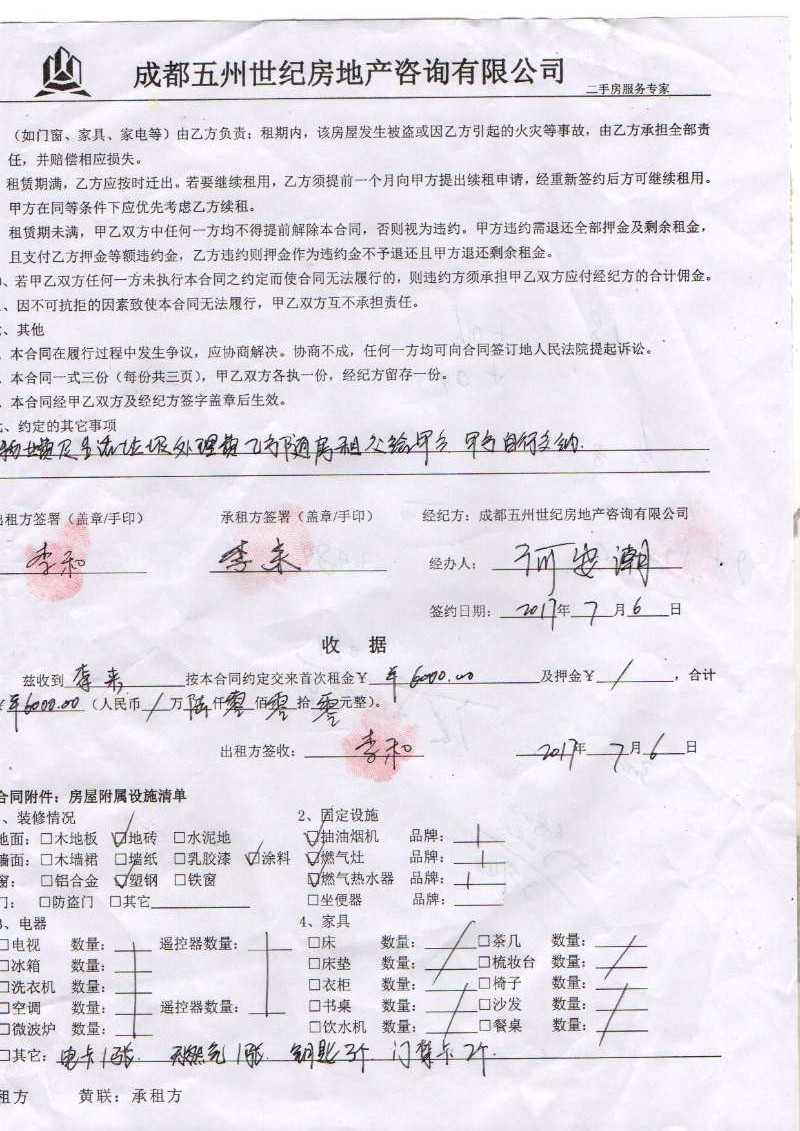 成都五州世纪房地产咨询有限公司
二手房服务专家
（如门窗、家具、家电等）由乙方负责；租期内，该房屋发生被盗或因乙方引起的火灾等事故，由乙方承担全部责
任，并赔偿相应损失。
租赁期满，乙方应按时迁出。若要继续租用，乙方须提前一个月向甲方提出续租申请，经重新签约后方可继续租用。
甲方在同等条件下应优先考虑乙方续租。
租赁期未满，甲乙双方中任何一方均不得提前解除本合同，否则视为违约。甲方违约需退还全部押金及剩余租金，
且支付乙方押金等额违约金，乙方违约则押金作为违约金不予退还且甲方退还剩余租金。
、若甲乙双方任何一方未执行本合同之约定而使合同无法履行的，则违约方须承担甲乙双方应付经纪方的合计佣金。
、因不可抗拒的因素致使本合同无法履行，甲乙双方互不承担责任。
、其他
、本合同在履行过程中发生争议，应协商解决。协商不成，任何一方均可向合同签订地人民法院提起诉讼。
、本合同一式三份（每份共三页），甲乙双方各执一份，经纪方留存一份。
、本合同经甲乙双方及经纪方签字盖章后生效。
、约定的其它事项
物业费及生活垃圾处理费乙方随房租交给甲方 甲方自行交纳.
出租方签署（盖章/手印） 承租方签署（盖章/手印） 经纪方：成都五州世纪房地产咨询有限公司
李和 李来 经办人： 安潮
签约日期： 2017年 7 月 6 日
收 据
兹收到 李来 按本合同约定交来首次租金￥ ￥6000.00 及押金￥ / ，合计
￥6000.00 （人民币 / 万 陆 仟 零 佰 零 拾 零 元整）。
出租方签收： 李和 2017年 7 月 6 日
合同附件：房屋附属设施清单
、装修情况 2、固定设施
地面：□木地板 ☑地砖 □水泥地 ☑抽油烟机 品牌：
墙面：□木墙裙 □墙纸 □乳胶漆 ☑涂料 ☑燃气灶 品牌：
窗：□铝合金 ☑塑钢 □铁窗 ☑燃气热水器 品牌：
门：□防盗门 □其它 □坐便器 品牌：
3、电器 4、家具
□电视 数量： 遥控器数量： □床 数量： □茶几 数量：
□冰箱 数量： □床垫 数量： □梳妆台 数量：
□洗衣机 数量： □衣柜 数量： □椅子 数量：
□空调 数量： 遥控器数量： □书桌 数量： □沙发 数量：
□微波炉 数量： □饮水机 数量： □餐桌 数量：
□其它： 电卡1张 天燃气1张 钥匙3个 门禁卡2个.
租方 黄联：承租方